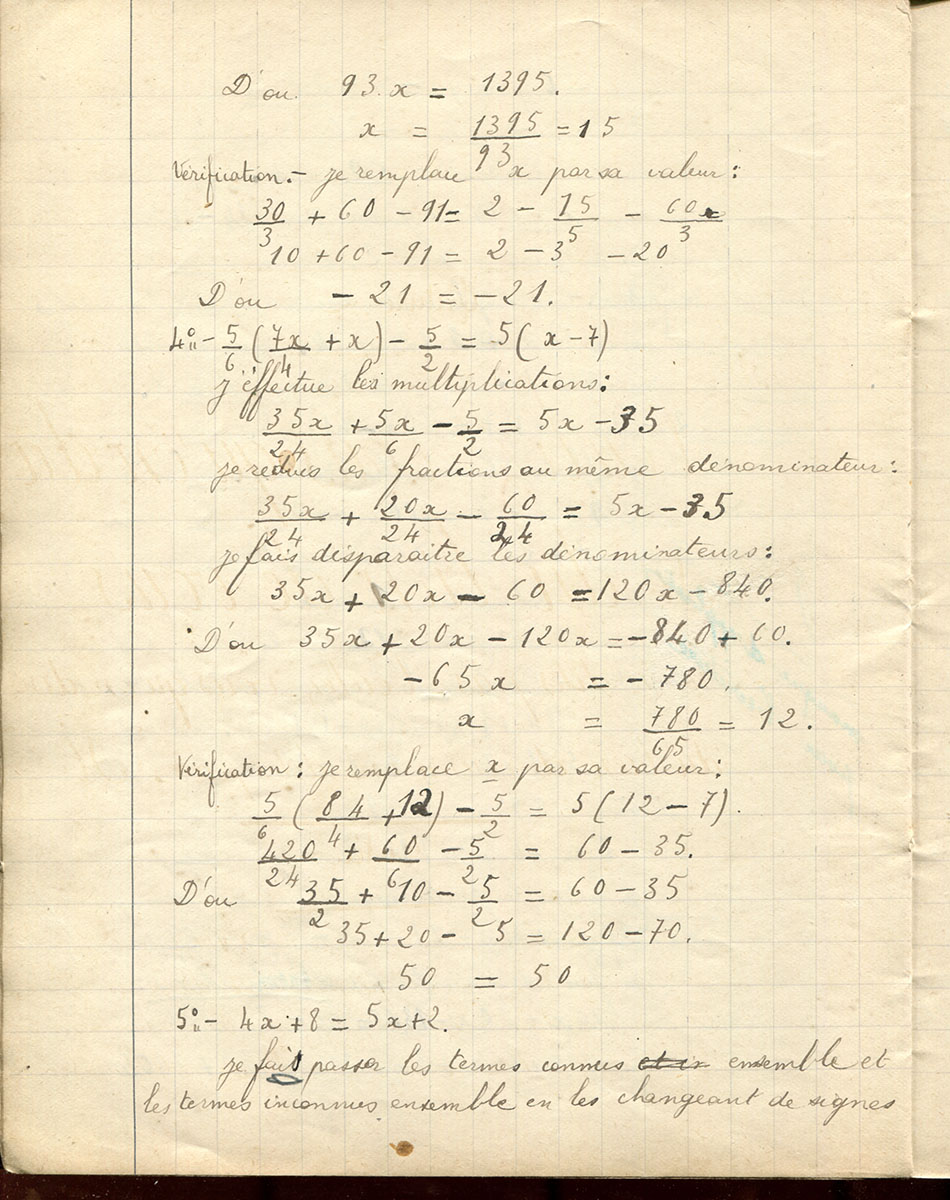 D'ou 93.x = 1395.
x = 1395/93 = 15
Vérification.- je remplace x par sa valeur :
30/3 + 60 - 91 = 2 - 15/5 - 60/3
10 + 60 - 91 = 2 - 3 - 20
D'ou - 21 = - 21.
4°- 5/6 ( 7x/4 + x ) - 5/2 = 5 ( x - 7 )
j'effectue les multiplications :
35x/24 + 5x/6 - 5/2 = 5x - 35
je réduis les fractions au même dénominateur :
35x/24 + 20x/24 - 60/24 = 5x - 35
je fais disparaitre les dénominateurs :
35x + 20x - 60 = 120x - 840.
D'ou 35x + 20x - 120x = - 840 + 60.
- 65x = - 780.
x = 780/65 = 12.
Vérification : je remplace x par sa valeur :
5/6 ( 84/4 + 12 ) - 5/2 = 5 ( 12 - 7 ).
420/24 + 60/6 - 5/2 = 60 - 35.
D'ou 35/2 + 10 - 5/2 = 60 - 35
35 + 20 - 5 = 120 - 70.
50 = 50
5°- 4x + 8 = 5x + 2.
je fais passer les termes connus ensemble et
les termes inconnus ensemble en les changeant de signes